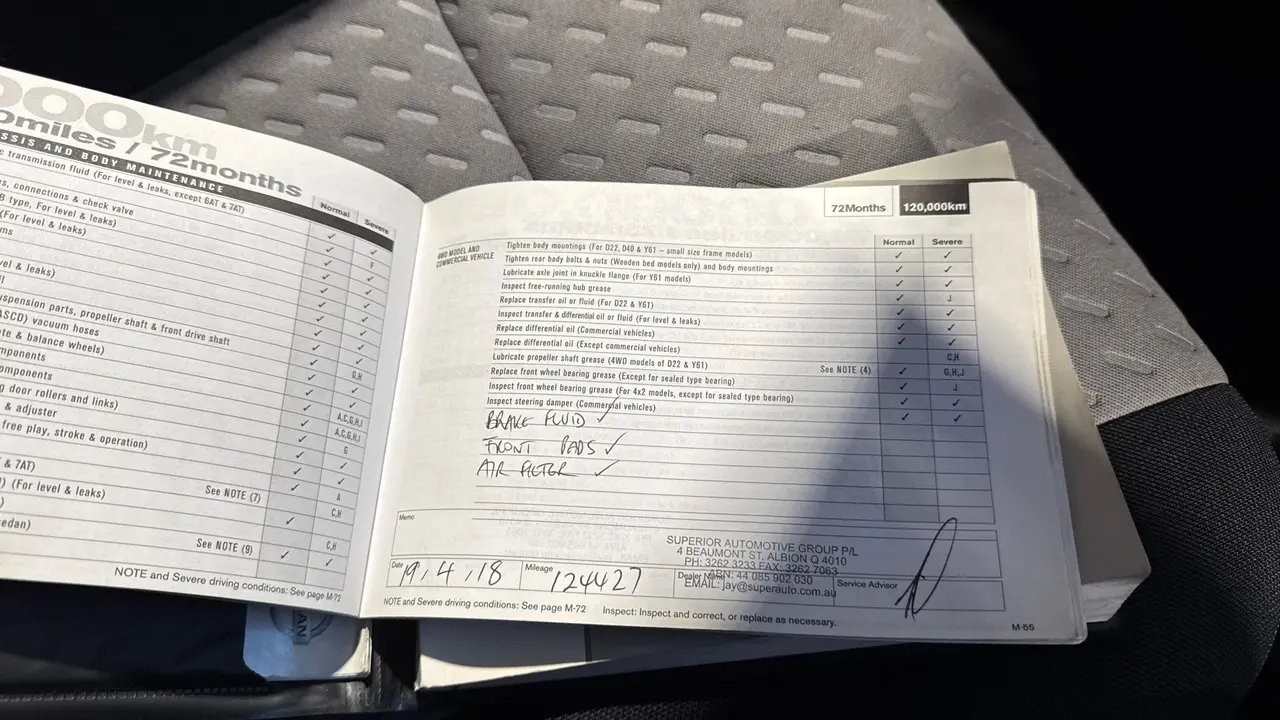 000km
0miles / 72months
SSIS AND BODY MAINTENANCE
c transmission fluid (For level & leaks, except 6AT & 7AT)
Normal Severe
s, connections & check valve ✓
B type, For level & leaks) ✓ ✓
(For level & leaks) ✓ ✓
ms ✓ ✓
vel & leaks) ✓ ✓
uspension parts, propeller shaft & front drive shaft ✓ ✓
ASCD) vacuum hoses ✓
te & balance wheels) ✓ G,H
mponents ✓ ✓
omponents ✓ ✓
g door rollers and links) ✓ A,C,G,H,I
& adjuster ✓ A,C,G,H,I
free play, stroke & operation) ✓ G
& 7AT) ✓ ✓
) (For level & leaks) See NOTE (7) A
✓ C,H
edan)
See NOTE (9) ✓ C,H
✓
NOTE and Severe driving conditions: See page M-72
72Months 120,000km
Normal Severe
4WD MODEL AND
COMMERCIAL VEHICLE
Tighten body mountings (For D22, D40 & Y61 – small size frame models) ✓ ✓
Tighten rear body bolts & nuts (Wooden bed models only) and body mountings ✓ ✓
Lubricate axle joint in knuckle flange (For Y61 models) ✓ ✓
Inspect free-running hub grease ✓ J
Replace transfer oil or fluid (For D22 & Y61) ✓ ✓
Inspect transfer & differential oil or fluid (For level & leaks) ✓ ✓
Replace differential oil (Commercial vehicles) ✓ ✓
Replace differential oil (Except commercial vehicles) C,H
Lubricate propeller shaft grease (4WD models of D22 & Y61) See NOTE (4) ✓ G,H,J
Replace front wheel bearing grease (Except for sealed type bearing) ✓ J
Inspect front wheel bearing grease (For 4x2 models, except for sealed type bearing) ✓ ✓
Inspect steering damper (Commercial vehicles) ✓ ✓
BRAKE FLUID ✓
FRONT PADS ✓
AIR FILTER ✓
Memo
SUPERIOR AUTOMOTIVE GROUP P/L
4 BEAUMONT ST. ALBION Q 4010
PH: 3262 3233 FAX: 3262 7063
ABN: 44 085 902 030
EMAIL: jay@superauto.com.au
Date 19.4.18 Mileage 124427 Dealer Name Service Advisor
NOTE and Severe driving conditions: See page M-72 Inspect: Inspect and correct, or replace as necessary.
M-55